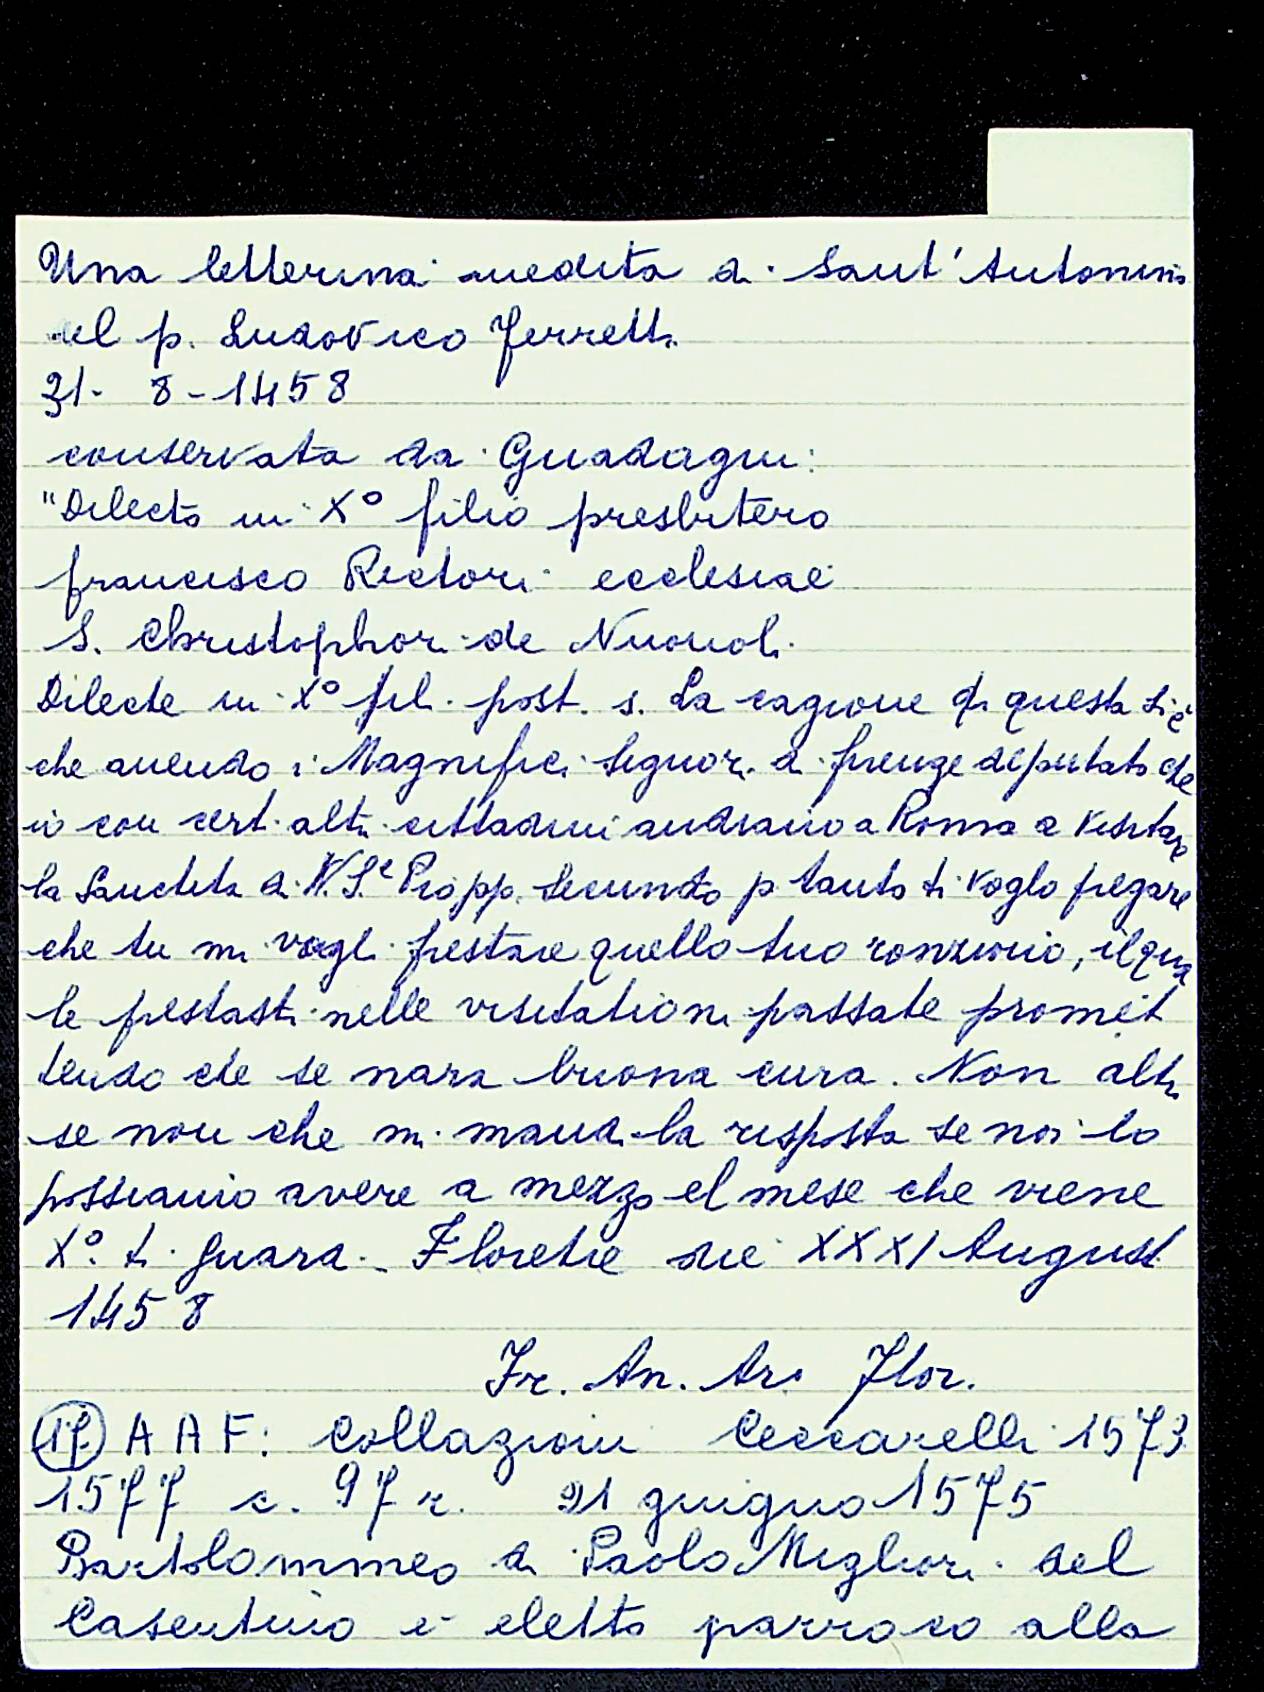 Una letterina inedita di Sant'Antonino
del p. Ludovico Ferretti
31-8-1458
conservata da Guadagni:
"Dilecto in X° filio presbitero
francisco Rectori ecclesiae
S. Christophori de Nuovoli
Dilecte in X° fil. post. s. La cagione di questa si è
che avendo i Magnifici Signori di firenze deputato che
io con certi altri cittadini andiamo a Roma a visitare
la Sanctità di N. S.e Pio pp. Secundo p tanto ti voglo pregare
che tu mi vogli prestare quello tuo ronzino, il qua
le prestasti nelle visitationi passate promet
tendo che se narà buona cura. Non altri
se non che mi mandi la risposta se noi lo
possiamo avere a mezzo el mese che viene
X°. ti guardi. Floretie die XXXI Augusti
1458
Fr. An. Ar. Flor.
17 AAF: Collazioni Ceccarelli 1573
1577 c. 97 r. 21 giugno 1575
Bartolommeo di Paolo Migliori del
Casentino è eletto parroco alla